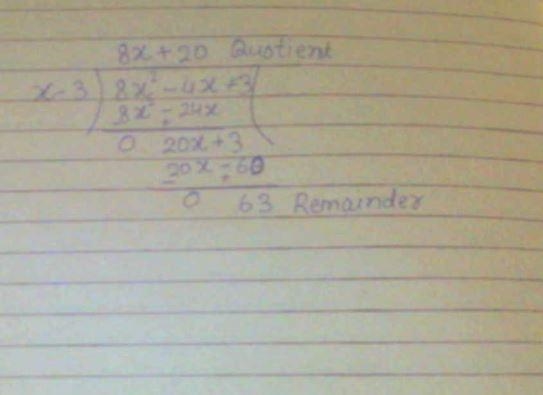 8x + 20 Quotient
x - 3 ) 8x² - 4x + 3 (
8x² - 24x
- +
0 20x + 3
20x - 60
- +
0 63 Remainder